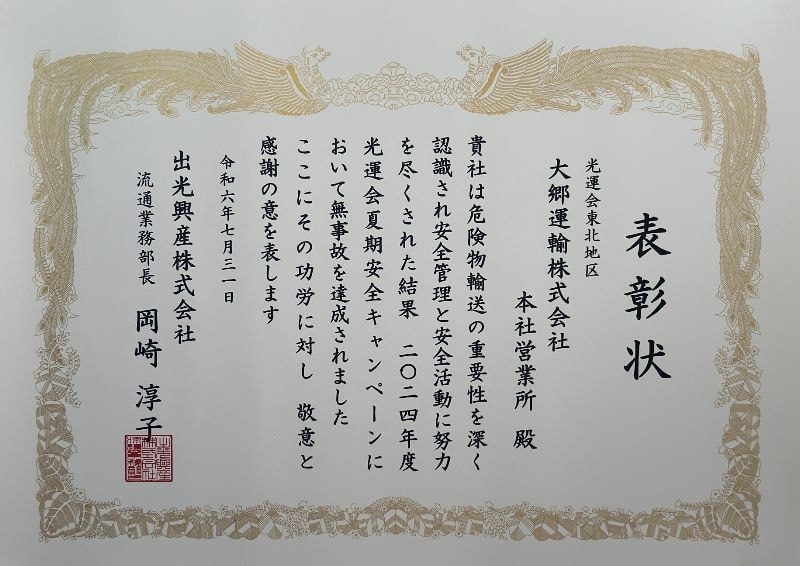 表彰状
光運会東北地区
大郷運輸株式会社
本社営業所 殿
貴社は危険物輸送の重要性を深く
認識され安全管理と安全活動に努力
を尽くされた結果 二〇二四年度
光運会夏期安全キャンペーンに
おいて無事故を達成されました
ここにその功労に対し 敬意と
感謝の意を表します
令和六年七月三一日
出光興産株式会社
流通業務部長 岡崎 淳子